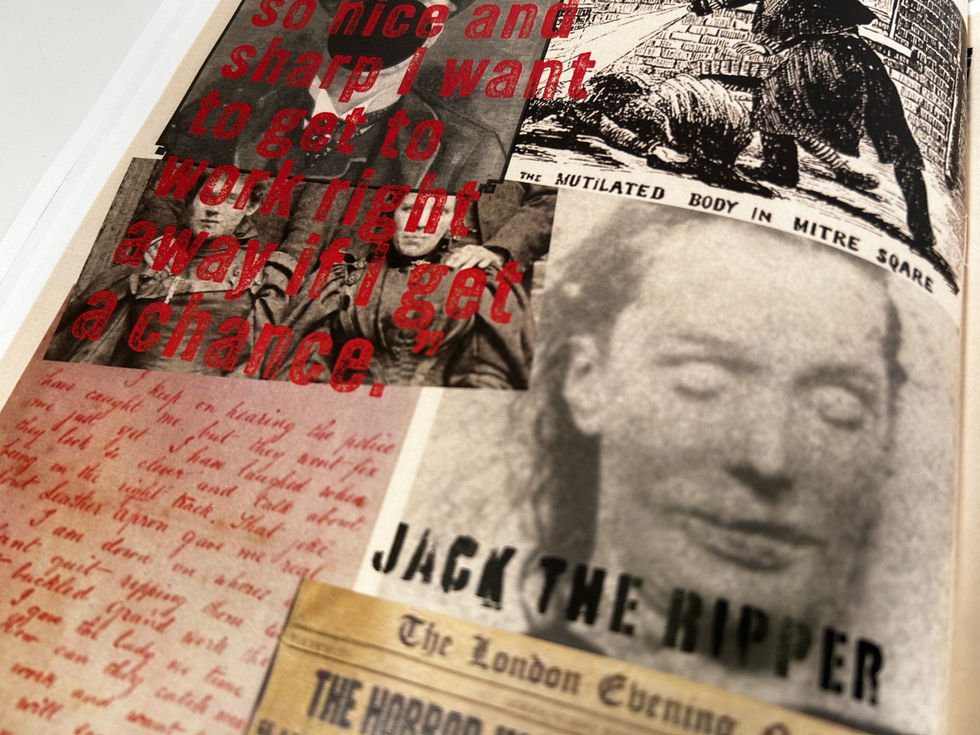 so nice and
sharp I want
to get to
work right
away if I get
a chance."
THE MUTILATED BODY IN MITRE SQARE
I keep on hearing the police
have caught me but they wont fix
me just yet. I have laughed when
they look so clever and talk about
being on the right track. That joke
about Leather Apron gave me real
I am down on whores
quit ripping them
buckled. Grand work the
I gave the lady no time
How can they catch me
work and want
will
JACK THE RIPPER
The London Evening
THE HORROR